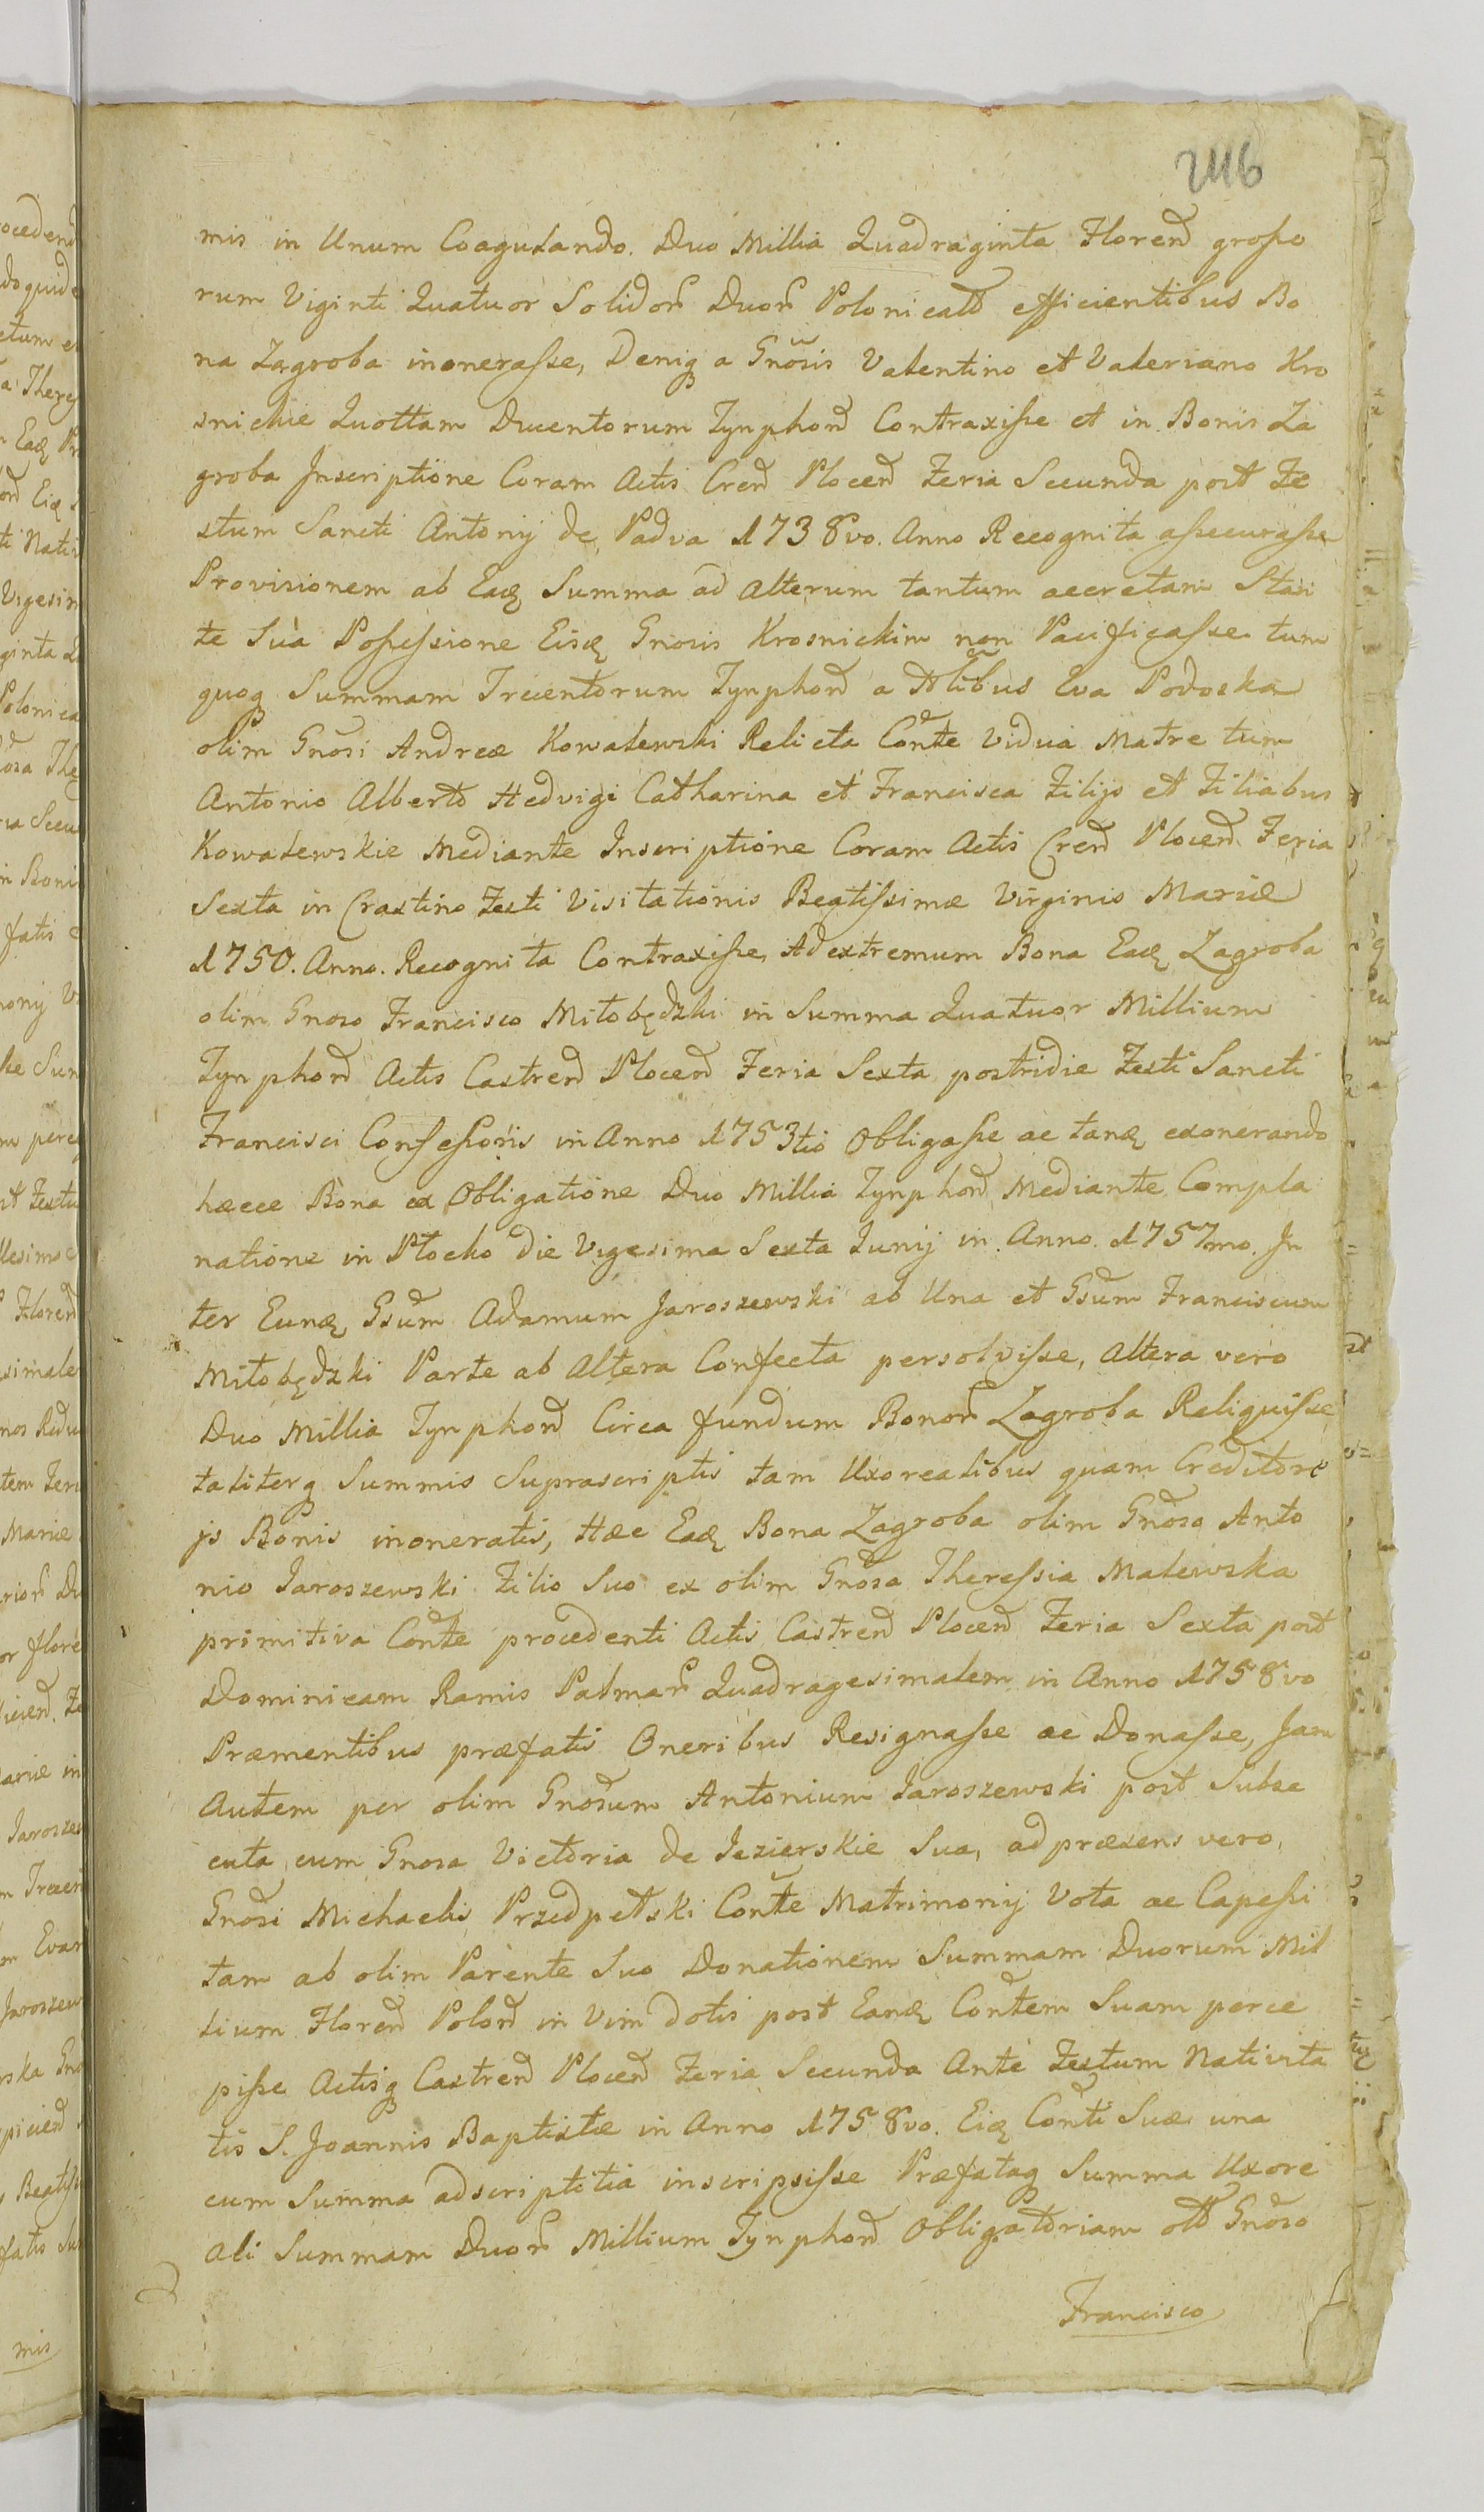 2116
mis in Unum Coagulando. Duo Millia Quadraginta Floren̄ groſso
rum Viginti Quatuor Solidor̄ Duor̄ Polonicalt̄ efficientibus Bo
na Zagroba inoneraſse, Deniq̨ a Gnōsis Valentino et Valeriano Kro
snickie Quottam Ducentorum Tynphon̄ Contraxiſse et in Bonis Za
groba Inscriptione Coram Actis Cren̄ Plocen̄ Feria Secunda post Fe
stum Sancti Antonij de Padva 1738vo. Anno Recognita aſsecuraſse
Provisionem ab Eaq̨ Summa ad alterum tantum accretam Stan
te Sua Poſseſsione Eisq̨ Gnosis Krosnickim non Pacificaſse tum
quoq̨ Summam Trecentorum Tynphon̄ a Htib̄us Eva Podoska
olim Gnōsi Andreæ Kowalewski Relicta Con̄te Vidua Matre tum
Antonio Alberto Hedvigi Catharina et Francisca Filijs et Filiabus
Kowalewskie Mediante Inscriptione Coram Actis Cren̄ Plocen̄. Feria
Sexta in Crastino Festi Visitationis Beatiſsimæ Virginis Mariæ
1750. Anno. Recognita Contraxiſse, Ad extremum Bona Eaq̨ Zagroba
olim Gnoso Francisco Miłobędzki in Summa Quatuor Millium
Tynphon̄ Actis Castren̄ Plocen̄ Feria Sexta postridie Festi Sancti
Francisci Confeſsoris in Anno 1753tio Obligaſse ac tanq̨ exonerando
hæcce Bona ex Obligatione Duo Millia Tynphon̄ Mediante Compla
natione in Płocko die Vigesima Sexta Junij in Anno 1757mo. In
ter Eunq̨ Gsūm Adamum Jaroszewski ab Una et Gsūm Franciscum
Miłobędzki Parte ab Altera Confecta persolviſse, Altera vero
Duo Millia Tynphon̄ Circa fundum Bonor̄ Zagroba Reliquiſse
taliterq̨ Summis Suprascriptis tam Uxorealibus quam Creditore
js Bonis inoneratis, Hæc Eaq̨ Bona Zagroba olim Gnōso Anto
nio Jaroszewski Filio Suo ex olim Gnōsa Thereſsia Malewska
primitiva Con̄te procedenti Actis Castren̄ Plocen̄ Feria Sexta post
Dominicam Ramis Palmar̄ Quadragesimalem in Anno 1758vo
Præmentibus præfatis Oneribus Resignaſse ac Donaſse, Jam
Autem per olim Gnōsum Antonium Jaroszewski post Subse
cuta cum Gnosa Victoria de Jezierskie Sua, ad præsens vero,
Gnōsi Michaelis Przedpełski Con̄te Matrimonij Vota ac Capeſsi
tam ab olim Parente Suo Donationem Summam Duorum Mil
lium Floren̄ Polon̄ in Vim dotis post Eanq̨ Con̄tem Suam perce
piſse Actisq̨ Castren̄ Plocen̄ Feria Secunda Ante Festum Nativita
tis S. Joannis Baptistæ in Anno 1758vo. Eiq̨ Con̄ti Suæ una
cum Summa adscriptitia inscripsiſse Præfataq̨ Summa Uxore
ali Summam Duor̄ Millium Tynphon̄ Obligatoriam olt̄ Gnōso
Francisco